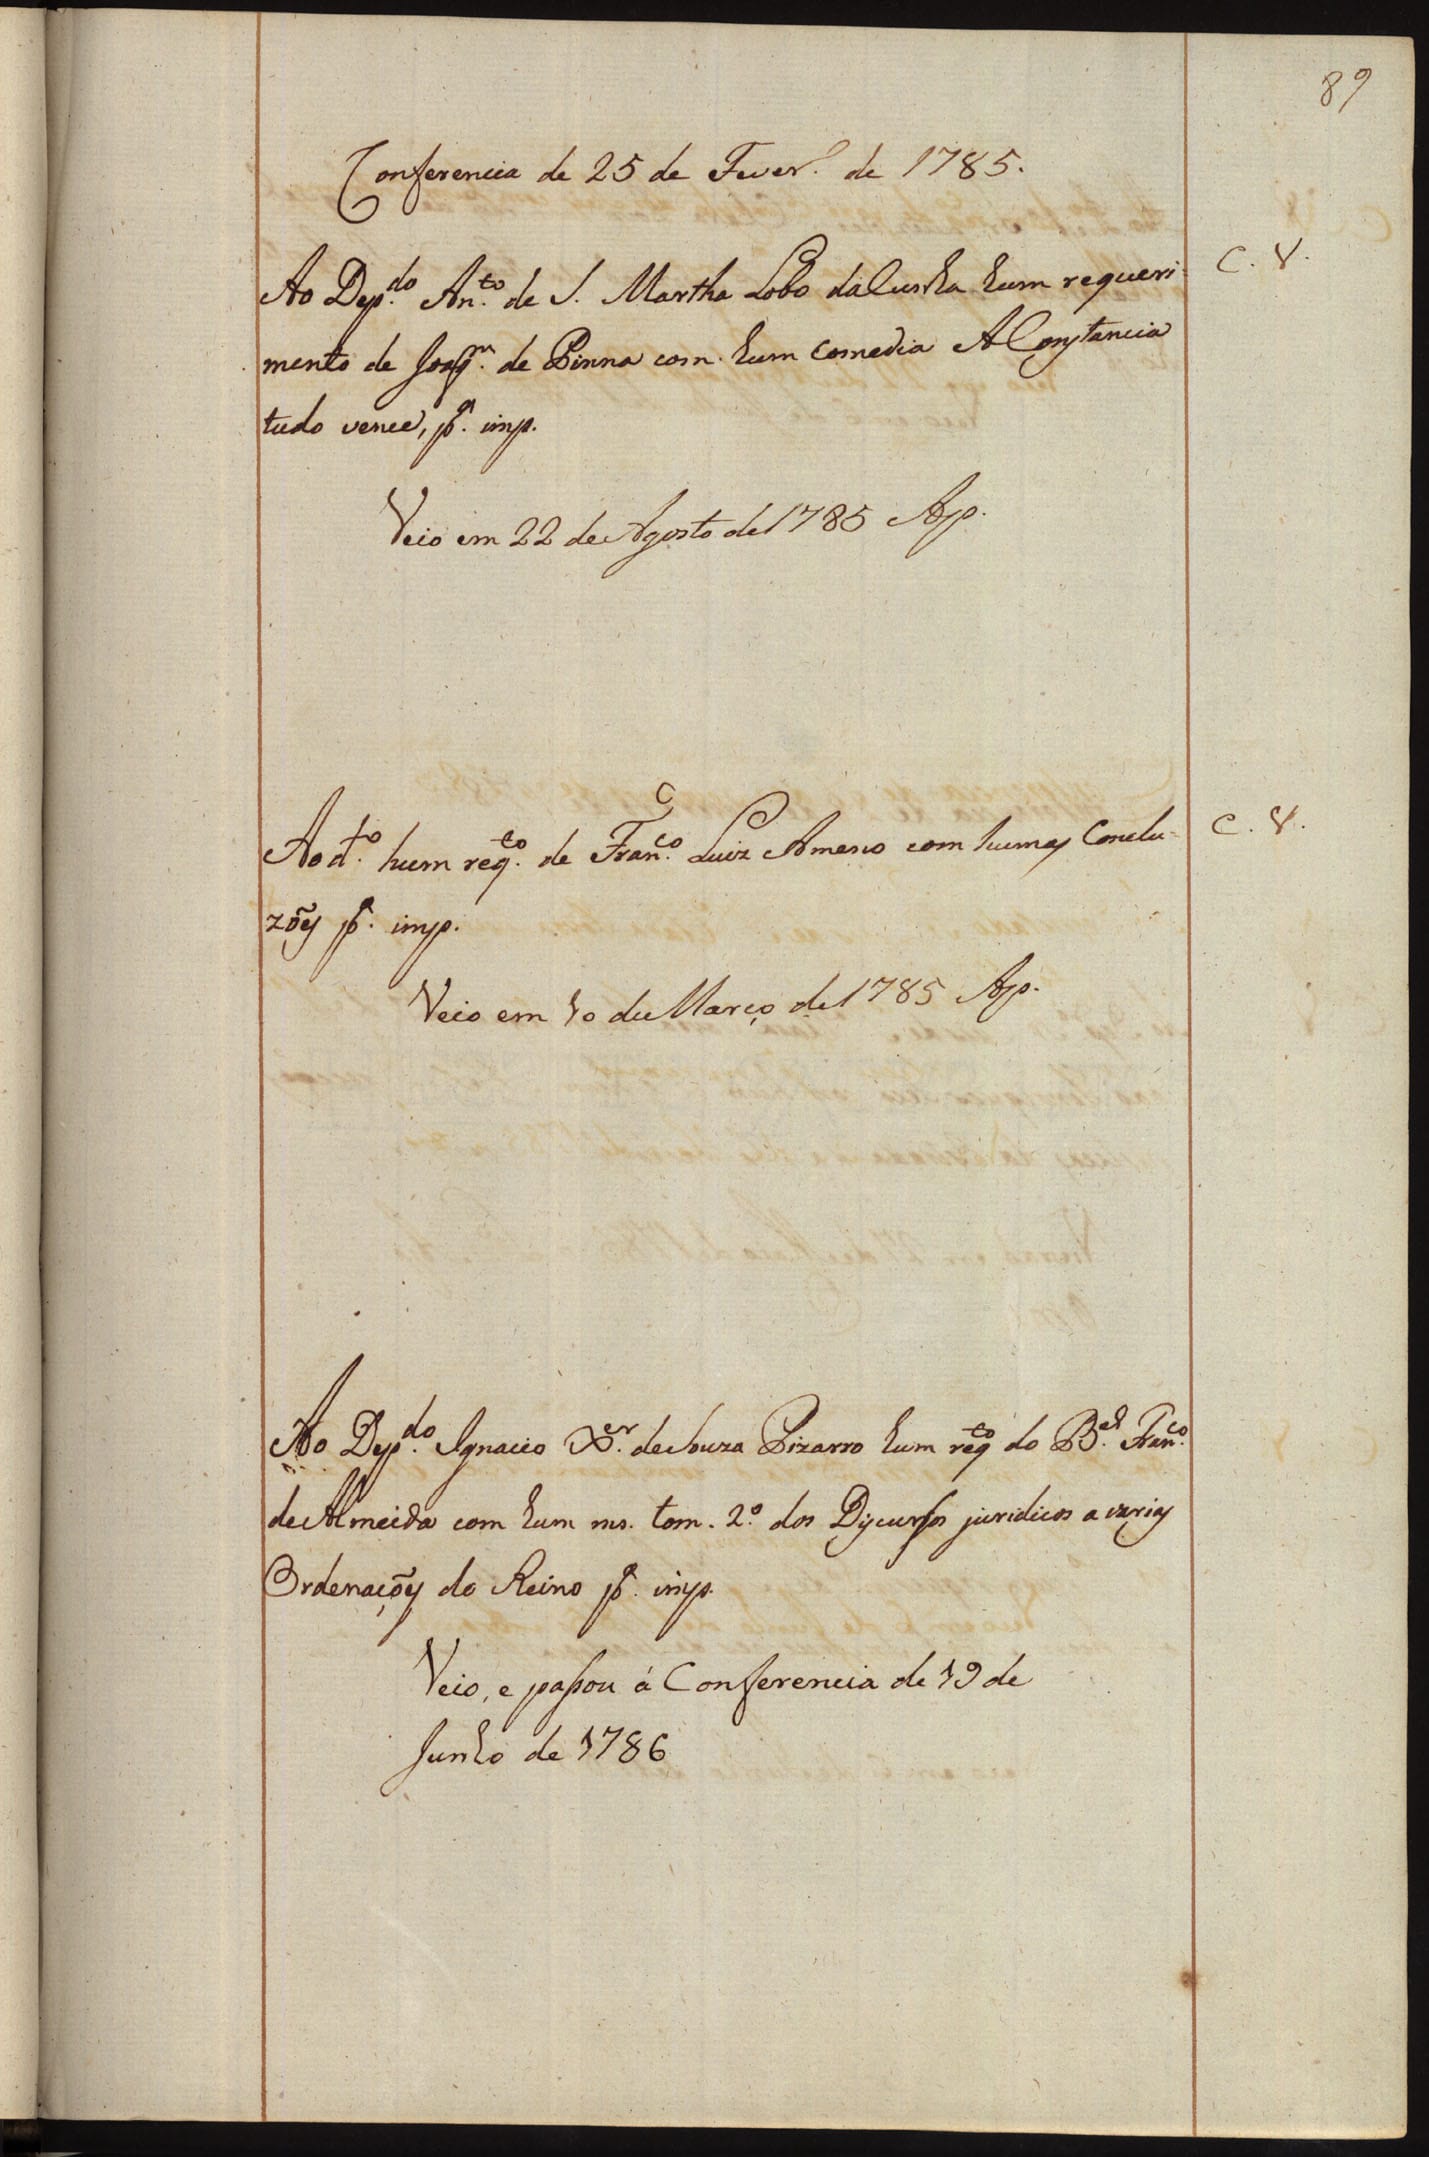 89
Conferencia de 25 de Fever.º de 1785.
Ao Dep.do An.to de S. Martha Lobo da Cunha hum requeri
mento de Joaq.m de Pinna com hum comedia A Constancia
tudo vence, p.a imp.
C. V.
Veio em 22 de Agosto de 1785 Ap.
Ao d.to hum req.to de Fran.co Luiz Ameno com humas Conclu-
zões p.a imp.
C. V.
Veio em 10 de Março de 1785 Ap.
Ao Dep.do Ignacio X.er de Souza Pizarro hum req.to do B.el Fran.co
de Almeida com hum ms. tom. 2.º dos Discursos juridicos a varias
Ordenações do Reino p.a imp.
Veio, e passou á Conferencia de 19 de
Junho de 1786